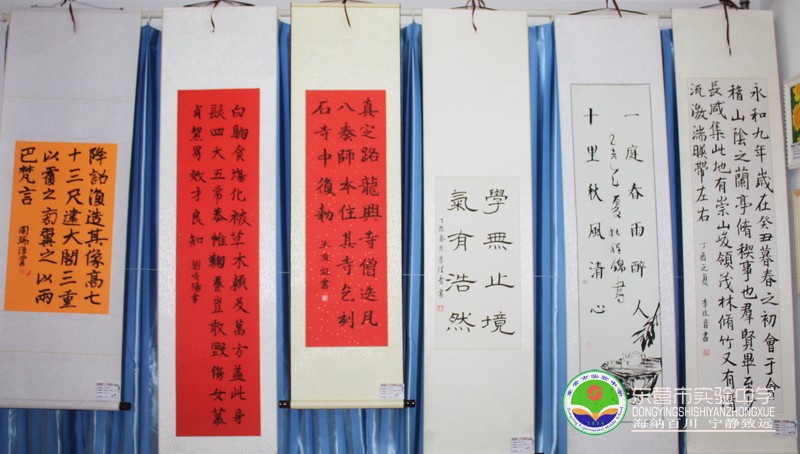 降詔復造其像高七
十三尺建大閣三重
以覆之旁翼之以兩
巴梵言
白駒食場化被草木賴及萬方盖此身
髮四大五常恭惟鞠養豈敢毀傷女慕
貞絜男效才良知
真定路龍興寺僧迭凡
八奏師本住其寺乞刻
石寺中復勑
學無止境
氣有浩然
一庭春雨醉人
十里秋風清心
永和九年歲在癸丑暮春之初會于
稽山陰之蘭亭脩稧事也羣賢畢至
長咸集此地有崇山峻領茂林脩竹又有
流激湍暎帶左右
丁酉之夏
东营市实验中学
DONGYINGSHISHIYANZHONGXUE
海纳百川 宁静致远